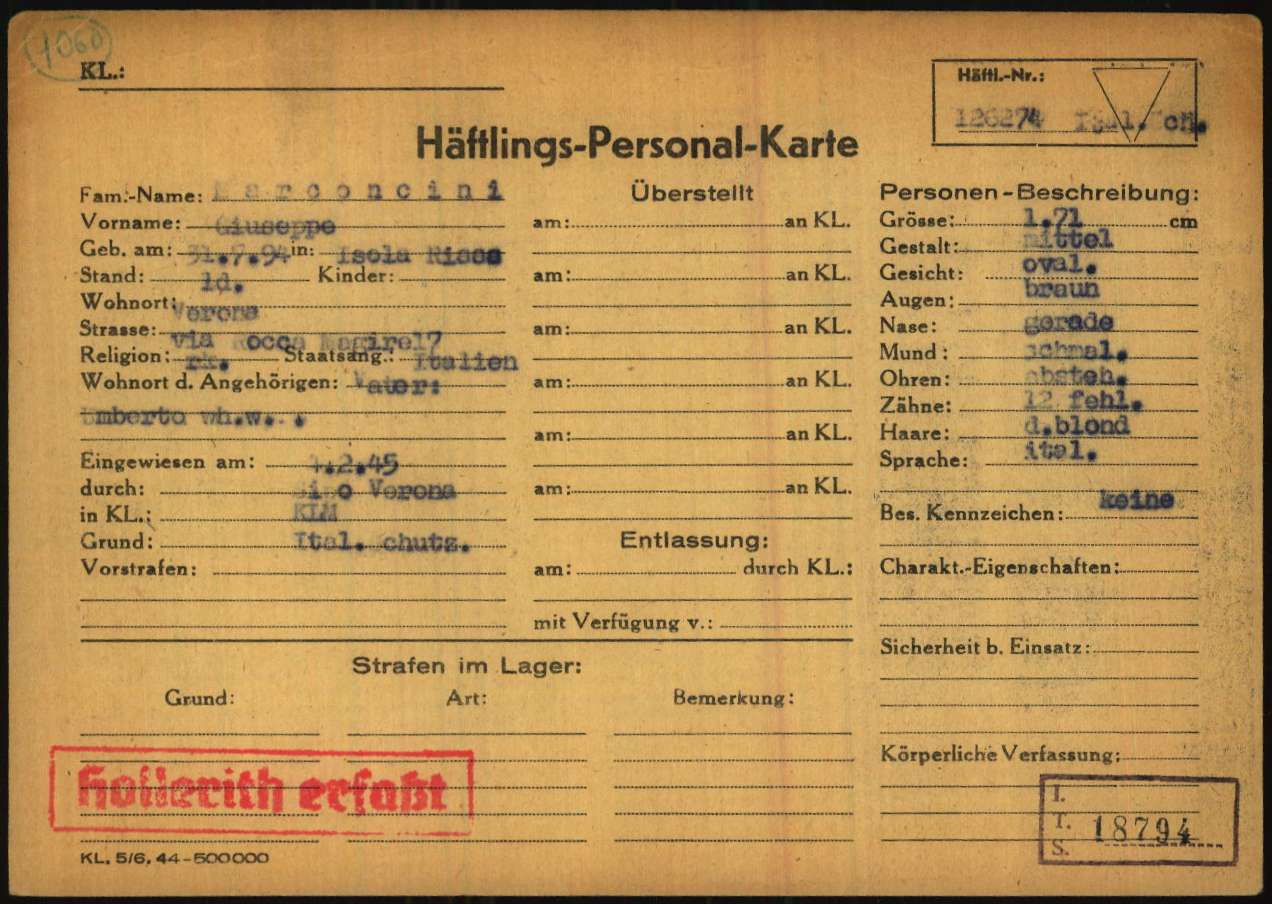 1060
KL.:
Häftl.-Nr.:
126274 Ital. Sch.
Häftlings-Personal-Karte
Fam.-Name: Marconcini
Vorname: Giuseppe
Geb. am: 31.7.94 in: Isola
Stand: ld. Kinder:
Wohnort: Verona
Strasse: via Rocca
Religion: rk. Staatsang.: Italien
Wohnort d. Angehörigen: Vater:
Umberto wh.w. .
Eingewiesen am: .2.45
durch: Sipo Verona
in KL.: KLM
Grund: Ital. Schutz.
Vorstrafen:
Überstellt
am: an KL.
am: an KL.
am: an KL.
am: an KL.
am: an KL.
am: an KL.
Entlassung:
am: durch KL.:
mit Verfügung v.:
Personen-Beschreibung:
Grösse: 1.71 cm
Gestalt: mittel
Gesicht: oval.
Augen: braun
Nase: gerade
Mund: schmal.
Ohren: absteh.
Zähne: 12 fehl.
Haare: d.blond
Sprache: ital.
Bes. Kennzeichen: keine
Charakt.-Eigenschaften:
Sicherheit b. Einsatz:
Körperliche Verfassung:
Strafen im Lager:
Grund: Art: Bemerkung:
Hollerith erfaßt
I.
T. 18794
S.
KL. 5/6. 44-500000